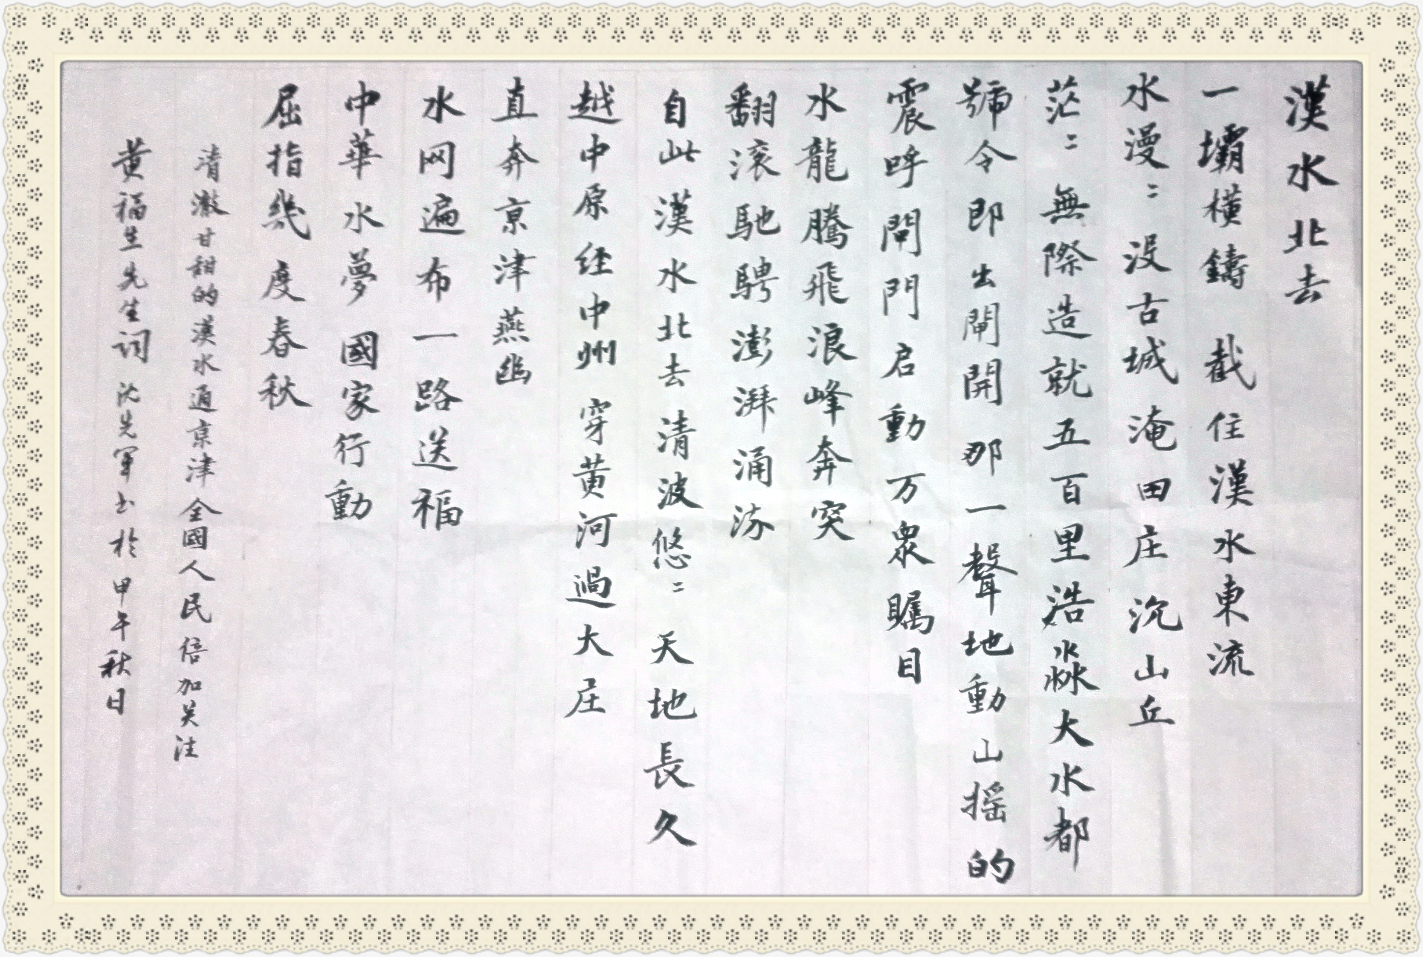 漢水北去
一壩橫鑄 截住漢水東流
水漫〻没古城淹田庄沉山丘
茫〻無際造就五百里浩淼大水都
號令即出閘開那一聲地動山摇的
震呼閘門启動万衆瞩目
水龍騰飛浪峰奔突
翻滚馳騁澎湃涌流
自此漢水北去清波悠〻天地長久
越中原经中州穿黄河過大庄
直奔京津燕幽
水网遍布一路送福
中華水夢國家行動
屈指幾度春秋
清澈甘甜的漢水通京津全國人民倍加关注
黄福生先生词沈先军书於甲午秋日